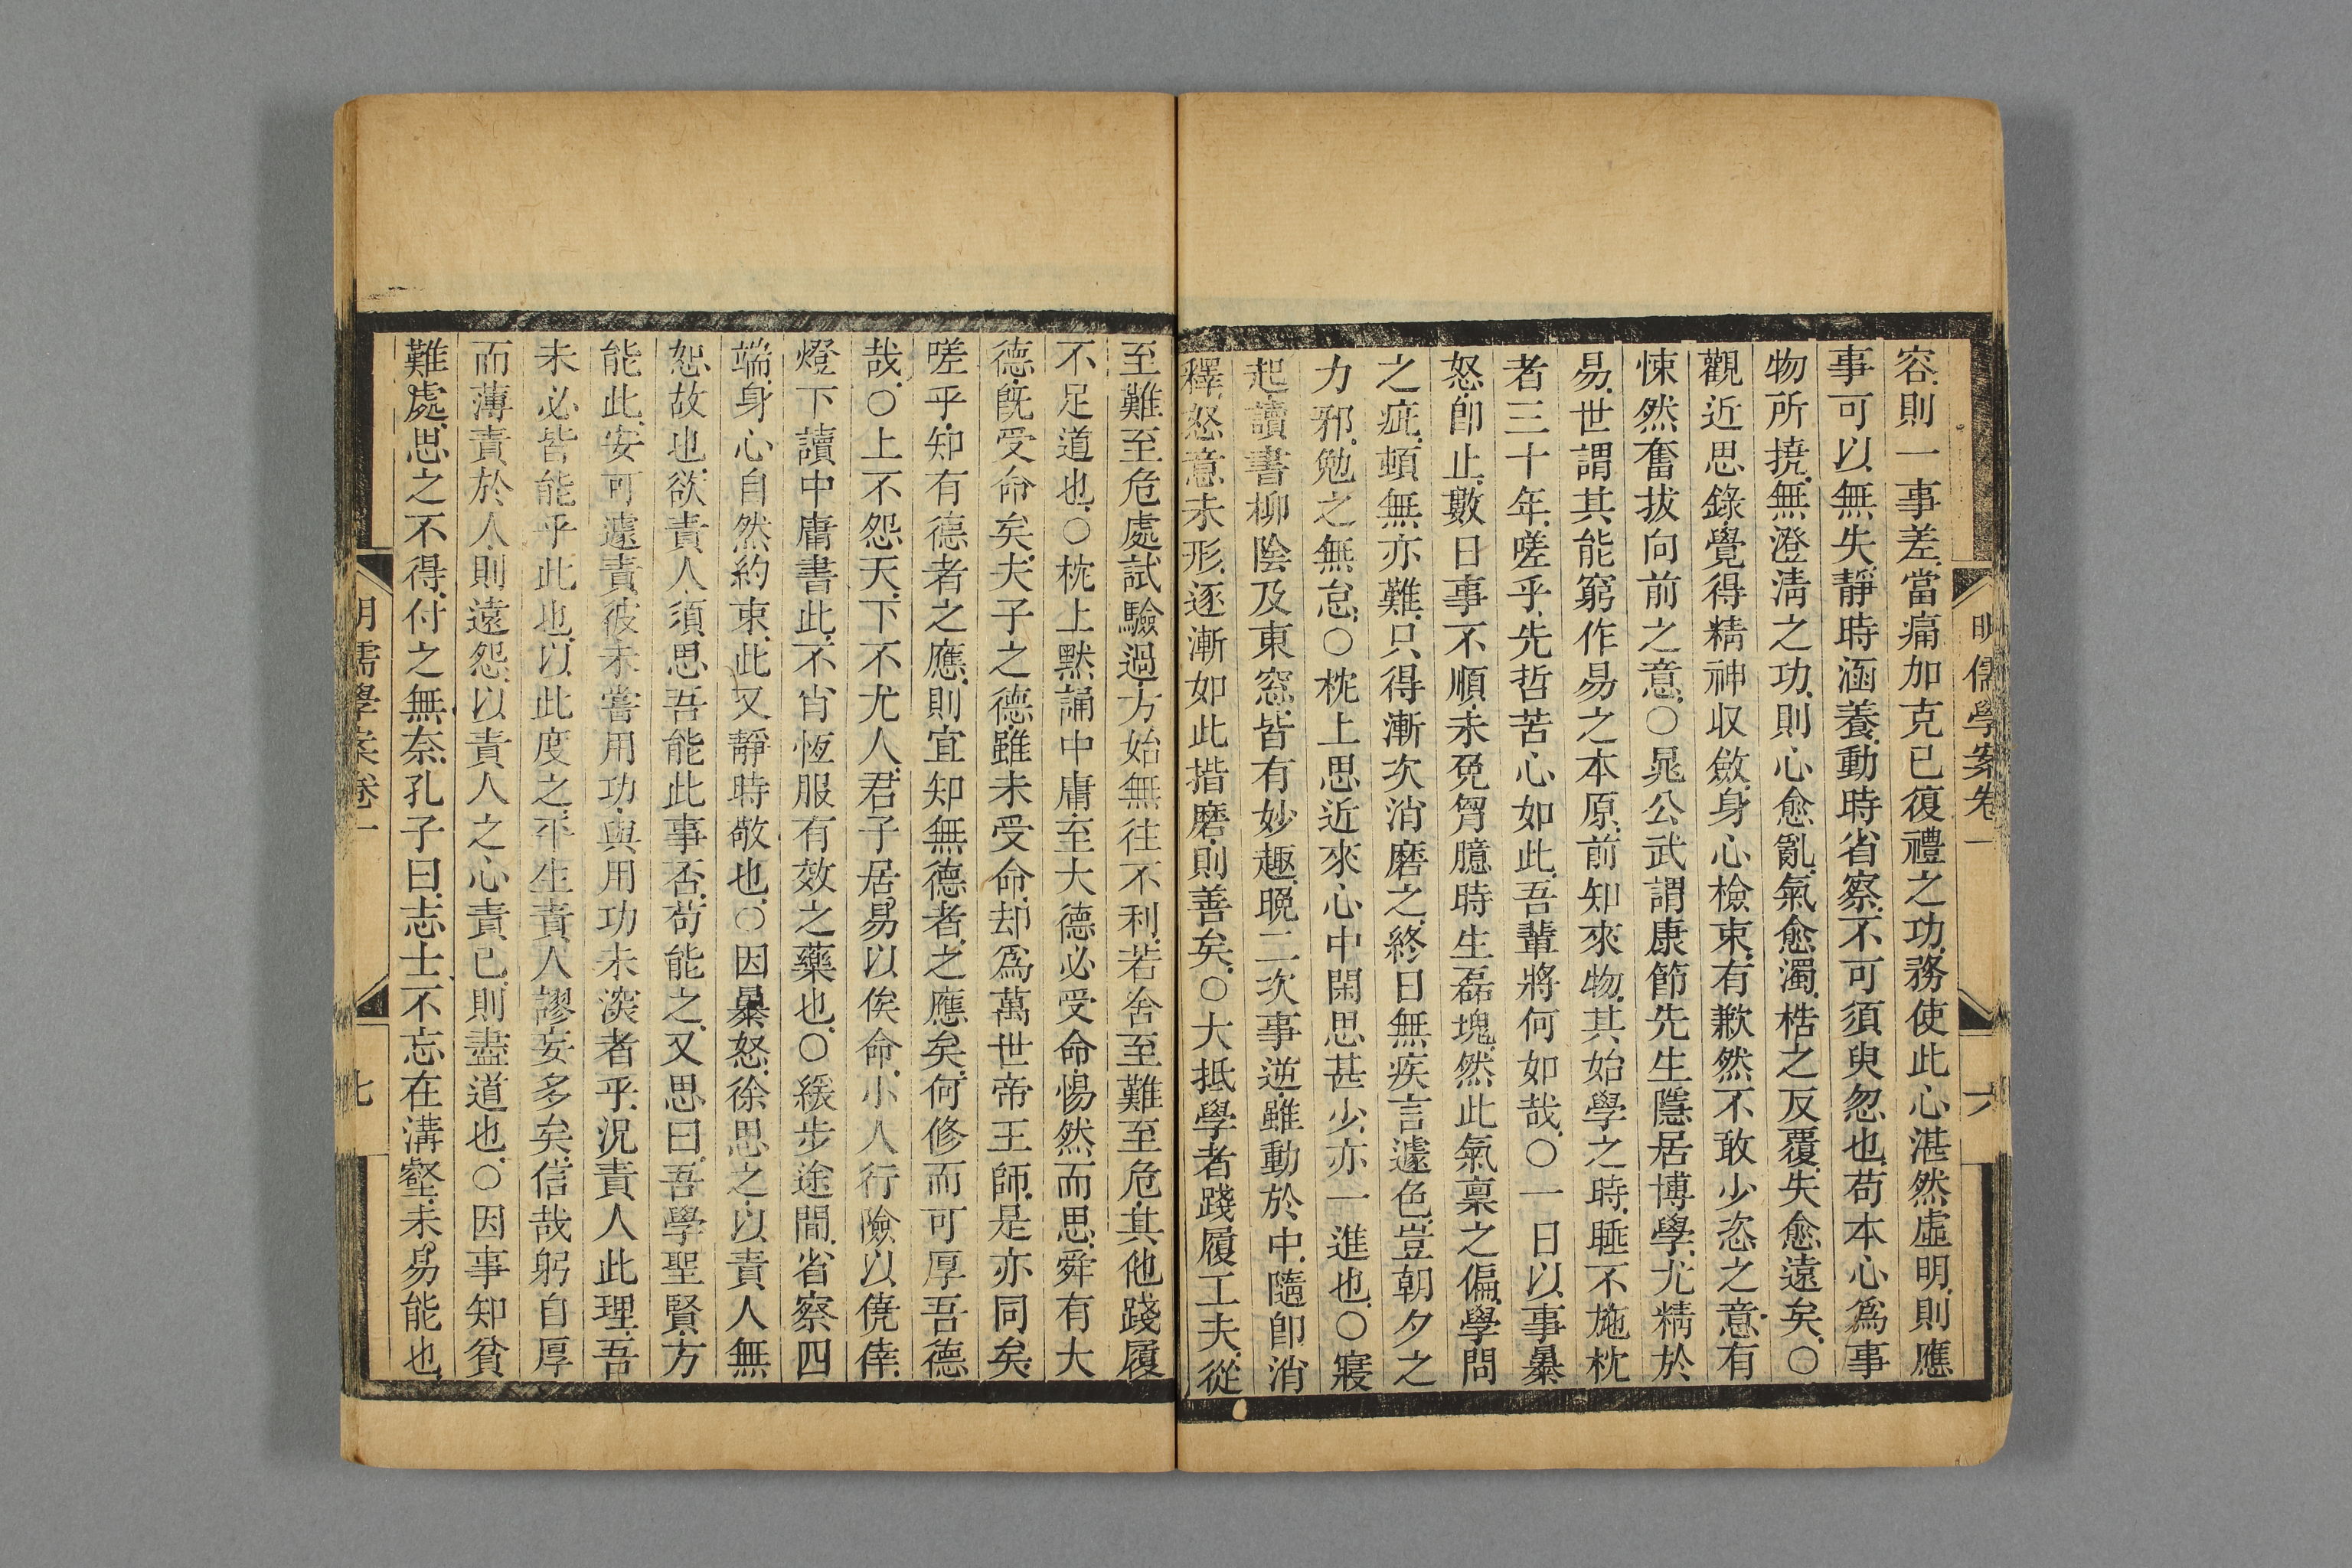 明儒學案卷一
六
容則一事差當痛加克已復禮之功務使此心湛然虛明則應
事可以無失靜時涵養動時省察不可須臾忽也苟本心爲事
物所撓無澄淸之功則心愈亂氣愈濁梏之反覆失愈遠矣○
觀近思錄覺得精神収斂身心檢束有歉然不敢少恣之意有
悚然奮拔向前之意○晁公武謂康節先生隱居博學尤精於
易世謂其能窮作易之本原前知來物其始學之時睡不施枕
者三十年嗟乎先哲苦心如此吾輩將何如哉○一日以事暴
怒卽止數日事不順未免胷臆時生磊塊然此氣稟之偏學問
之疵頓無亦難只得漸次消磨之終日無疾言遽色豈朝夕之
力邪勉之無怠○枕上思近來心中閑思甚少亦一進也○寢
起讀書柳陰及東窓皆有妙趣晚二次事逆雖動於中隨卽消
釋怒意未形逐漸如此揩磨則善矣○大抵學者踐履工夫從
至難至危處試驗過方始無往不利若舍至難至危其他踐履
不足道也○枕上默誦中庸至大德必受命惕然而思舜有大
德旣受命矣夫子之德雖未受命却爲萬世帝王師是亦同矣
嗟乎知有德者之應則宜知無德者之應矣何修而可厚吾德
哉○上不怨天下不尤人君子居易以俟命小人行險以僥倖
燈下讀中庸書此不肖恆服有效之藥也○緩步途間省察四
端身心自然約束此又靜時敬也○因暴怒徐思之以責人無
恕故也欲責人須思吾能此事否苟能之又思曰吾學聖賢方
能此安可遽責彼未嘗用功與用功未深者乎況責人此理吾
未必皆能乎此也以此度之平生責人謬妄多矣信哉躬自厚
而薄責於人則遠怨以責人之心責己則盡道也○因事知貧
難處思之不得付之無奈孔子曰志士不忘在溝壑未易能也
明儒學案卷一
七